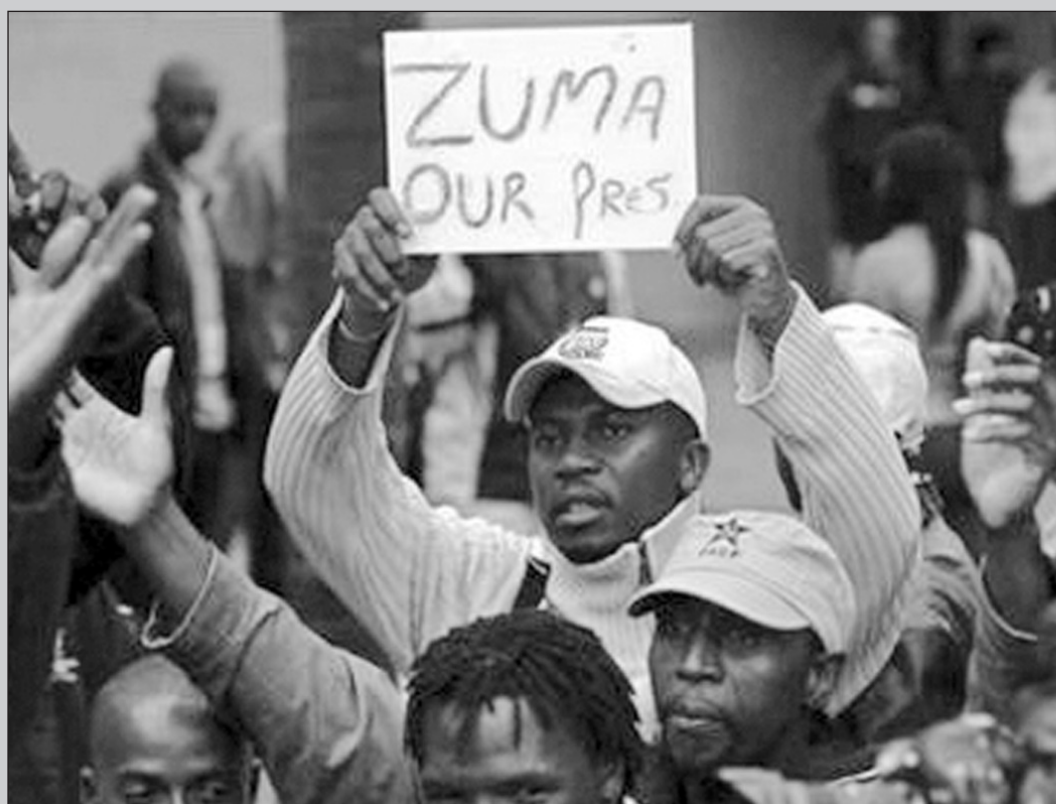 ZUMA
OUR PRES